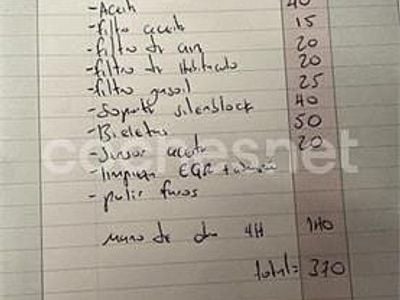 - Aceite 40
- filtro aceite 15
- filtro de aire 20
- filtro de Habitaculo 20
- filtro gasoil 25
- Soporte silenblock 40
- Bieletas 50
- Sensor aceite 20
- limpieza EGR +
- pulir faros
mano de 4H 140
total = 370
coches.net